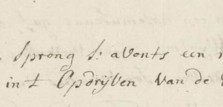 Sprong S: avonts een
in't Opdrijven van de